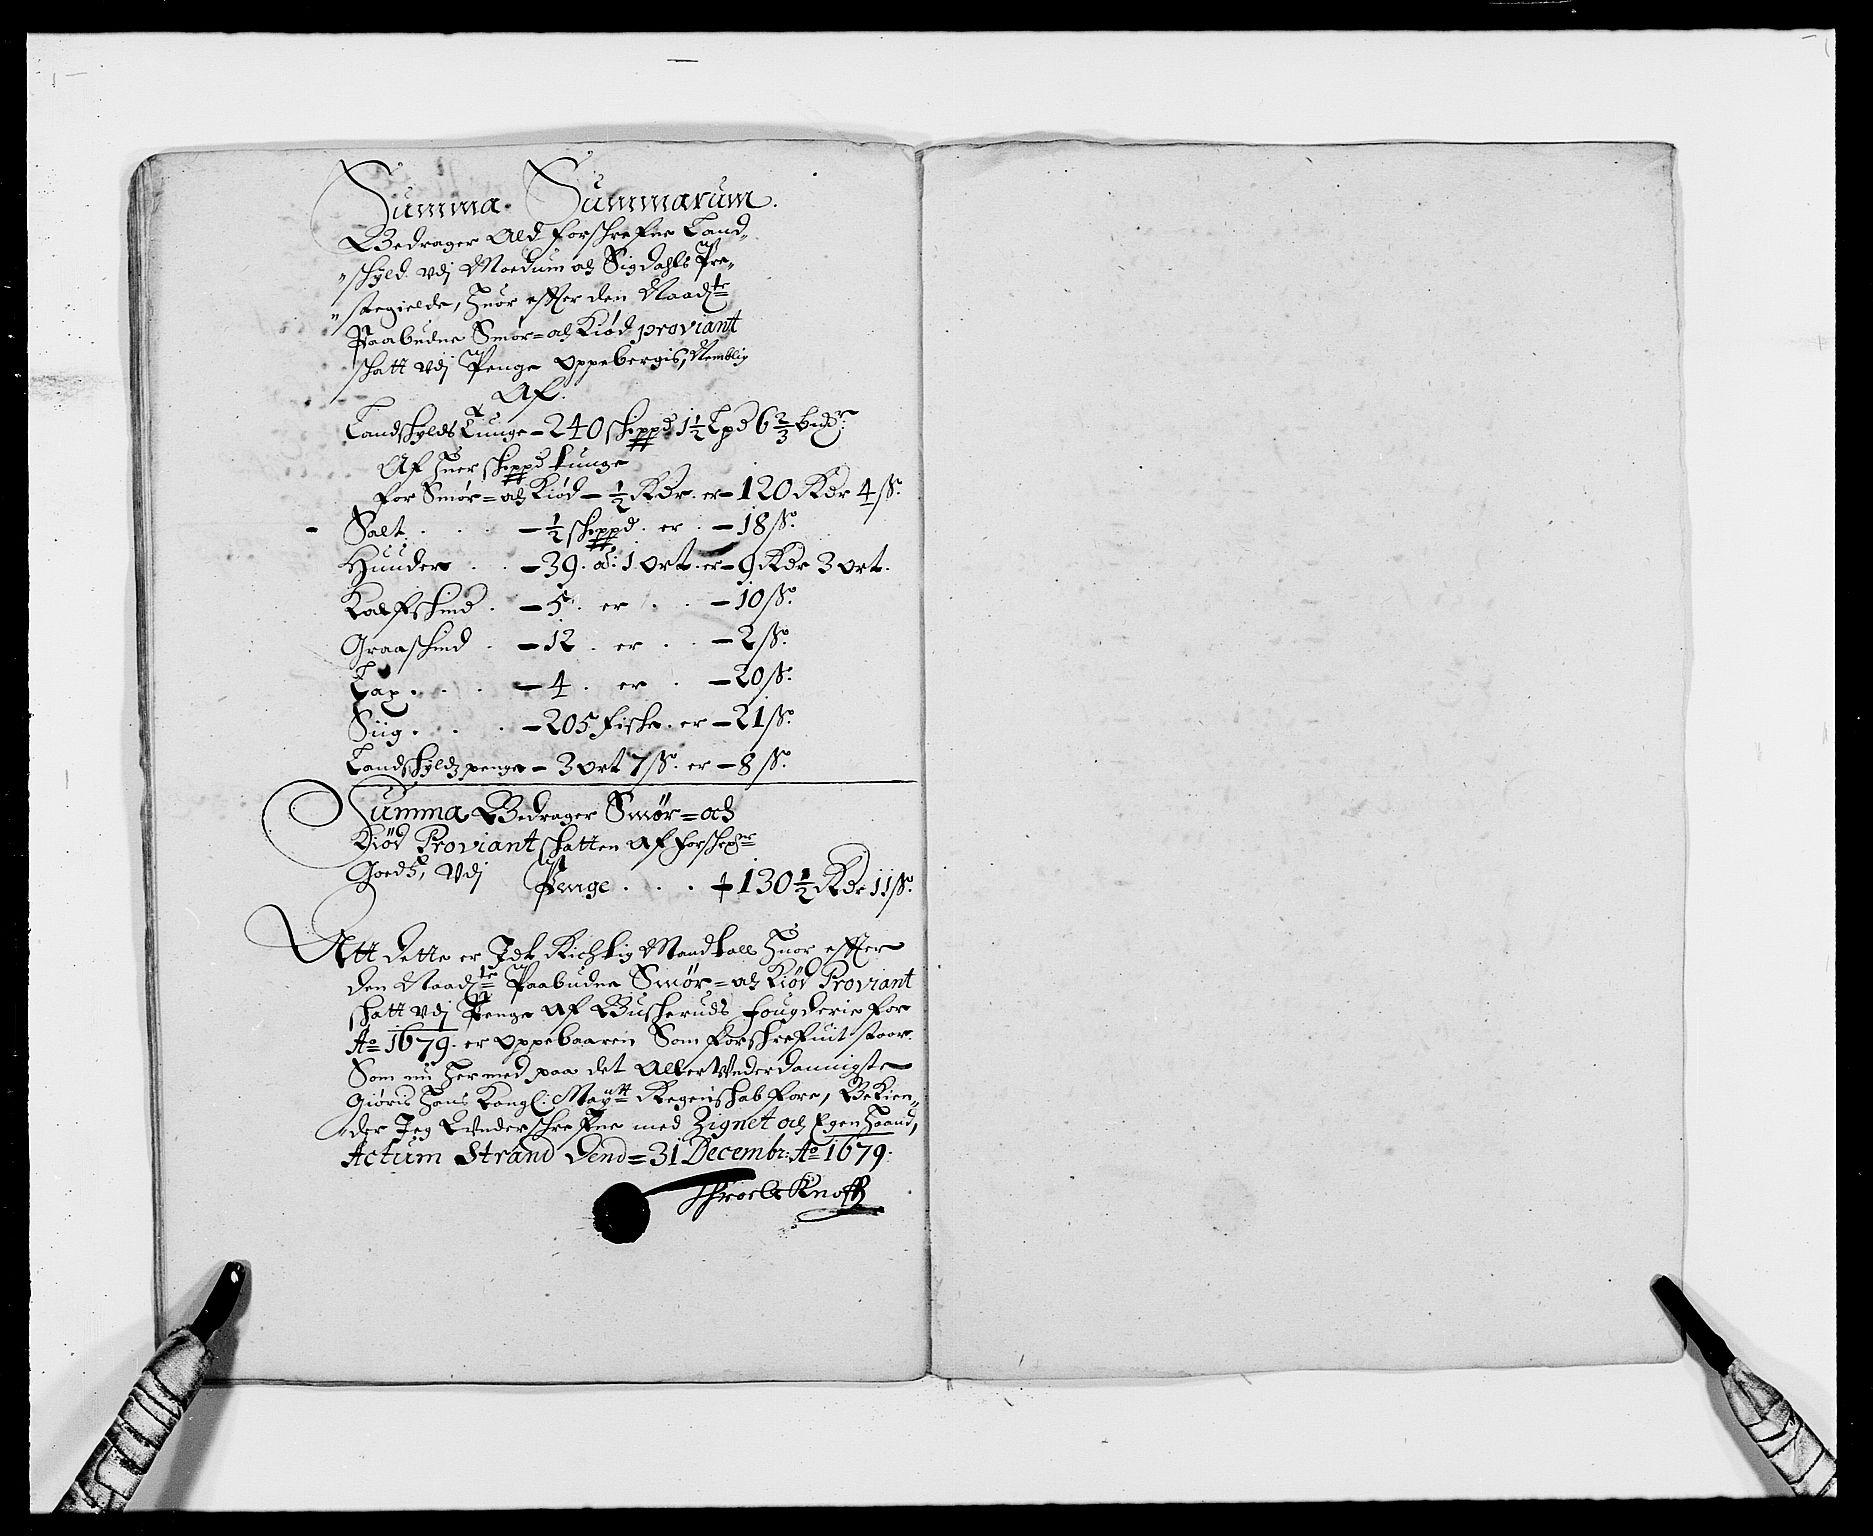 Summa Summarum.
Bedrager Ald forschrefne Land„
„schyld vdj Modum och Sigdahls Præ„
„stegielde, Huor effter den Naadigste
Paabudne Smør= och Kiød proviant
schatt vdj Penge Oppebergis, Nemblig
Af.
Landschylds tunge – 240 schippd 1½ Lpd 6⅔ bmd^r.
Af Huer schippd tunge
for Smør= och Kiød – ½ Rdr. er – 120 Rdr 4 ß.
– Salt . . . – ½ schippd. er. – 18 ß.
Huuder . . – 39. a: 1 ort. er – 9 Rdr 3 ort.
Kalfschind . – 5. er . . – 10 ß.
Graaschind . – 12 . er . . – 2 ß.
Lax . . . – 4 . er . – 20 ß.
Siig . . . – 205 fische. er – 21 ß.
Landschyldz penge – 3 ort 7 ß. er – 8 ß.
Summa Bedrager Smør= och
Kiød Proviant schatten af forschr^ne
Goedtz, Vdj Penge . . . + 130½ Rdr 11 ß.
Att dette er Ret Richtig Mandtall Huor effter
den Naadigste Paabudne Smør= och Kiød Proviant
schatt vdj Penge af Buscheruds fougderie for
A<sup>o</sup> 1679. er oppebaaren Som forschrefuit staar.
Som nu Hermed paa det Allervnderdanigste
Giøris Hans Kongl: May^tt Regenschab fore, Bekien„
„der Jeg Vnderschrefne med Zignet och Egen Haand,
Actum Strand Dend = 31 Decembr: A<sup>o</sup> 1679.
Knoff